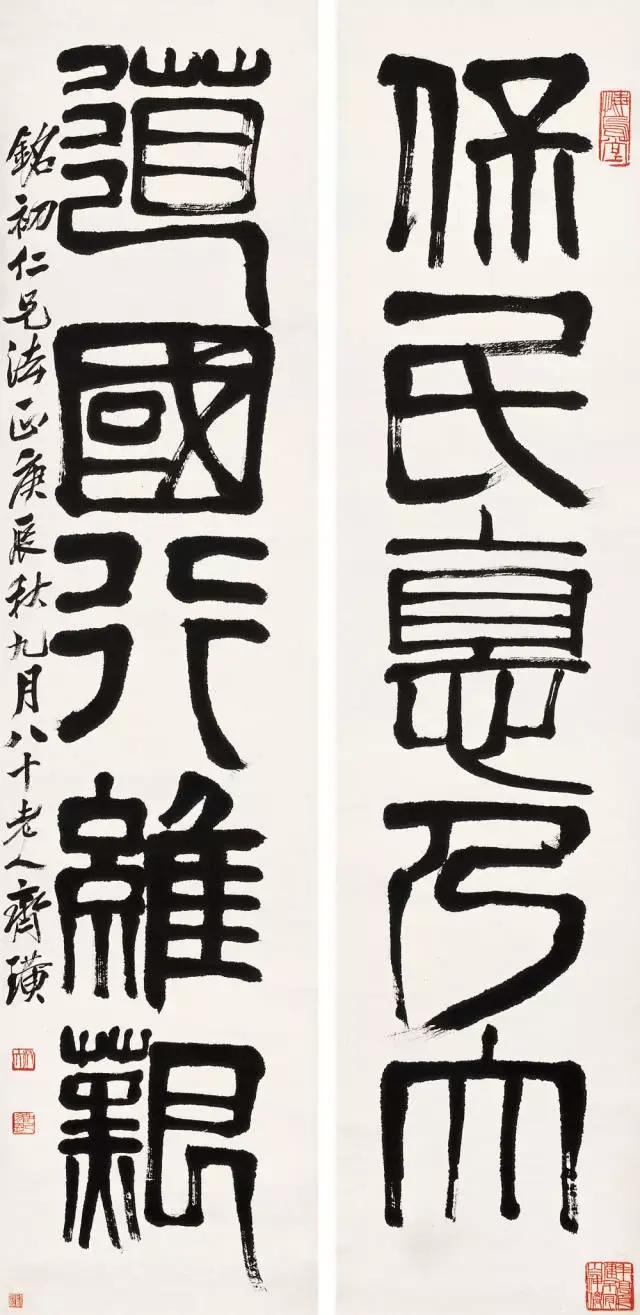 悔烏堂
保民惪乃大
道國行維艱
銘初仁兄法正庚辰秋九月八十老人齊璜